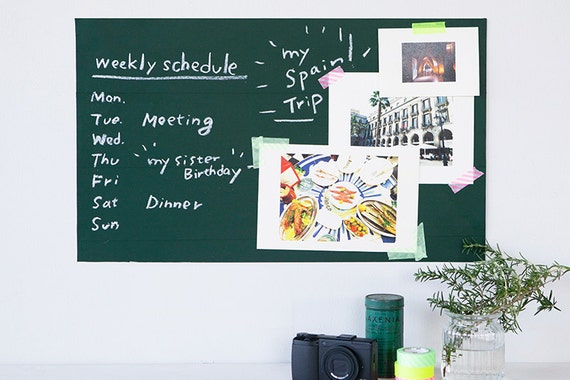 weekly schedule
my
Spain!
Trip
Mon.
Tue. Meeting
Wed.
Thu my sister
Birthday
Fri
Sat Dinner
Sun
AXENIA